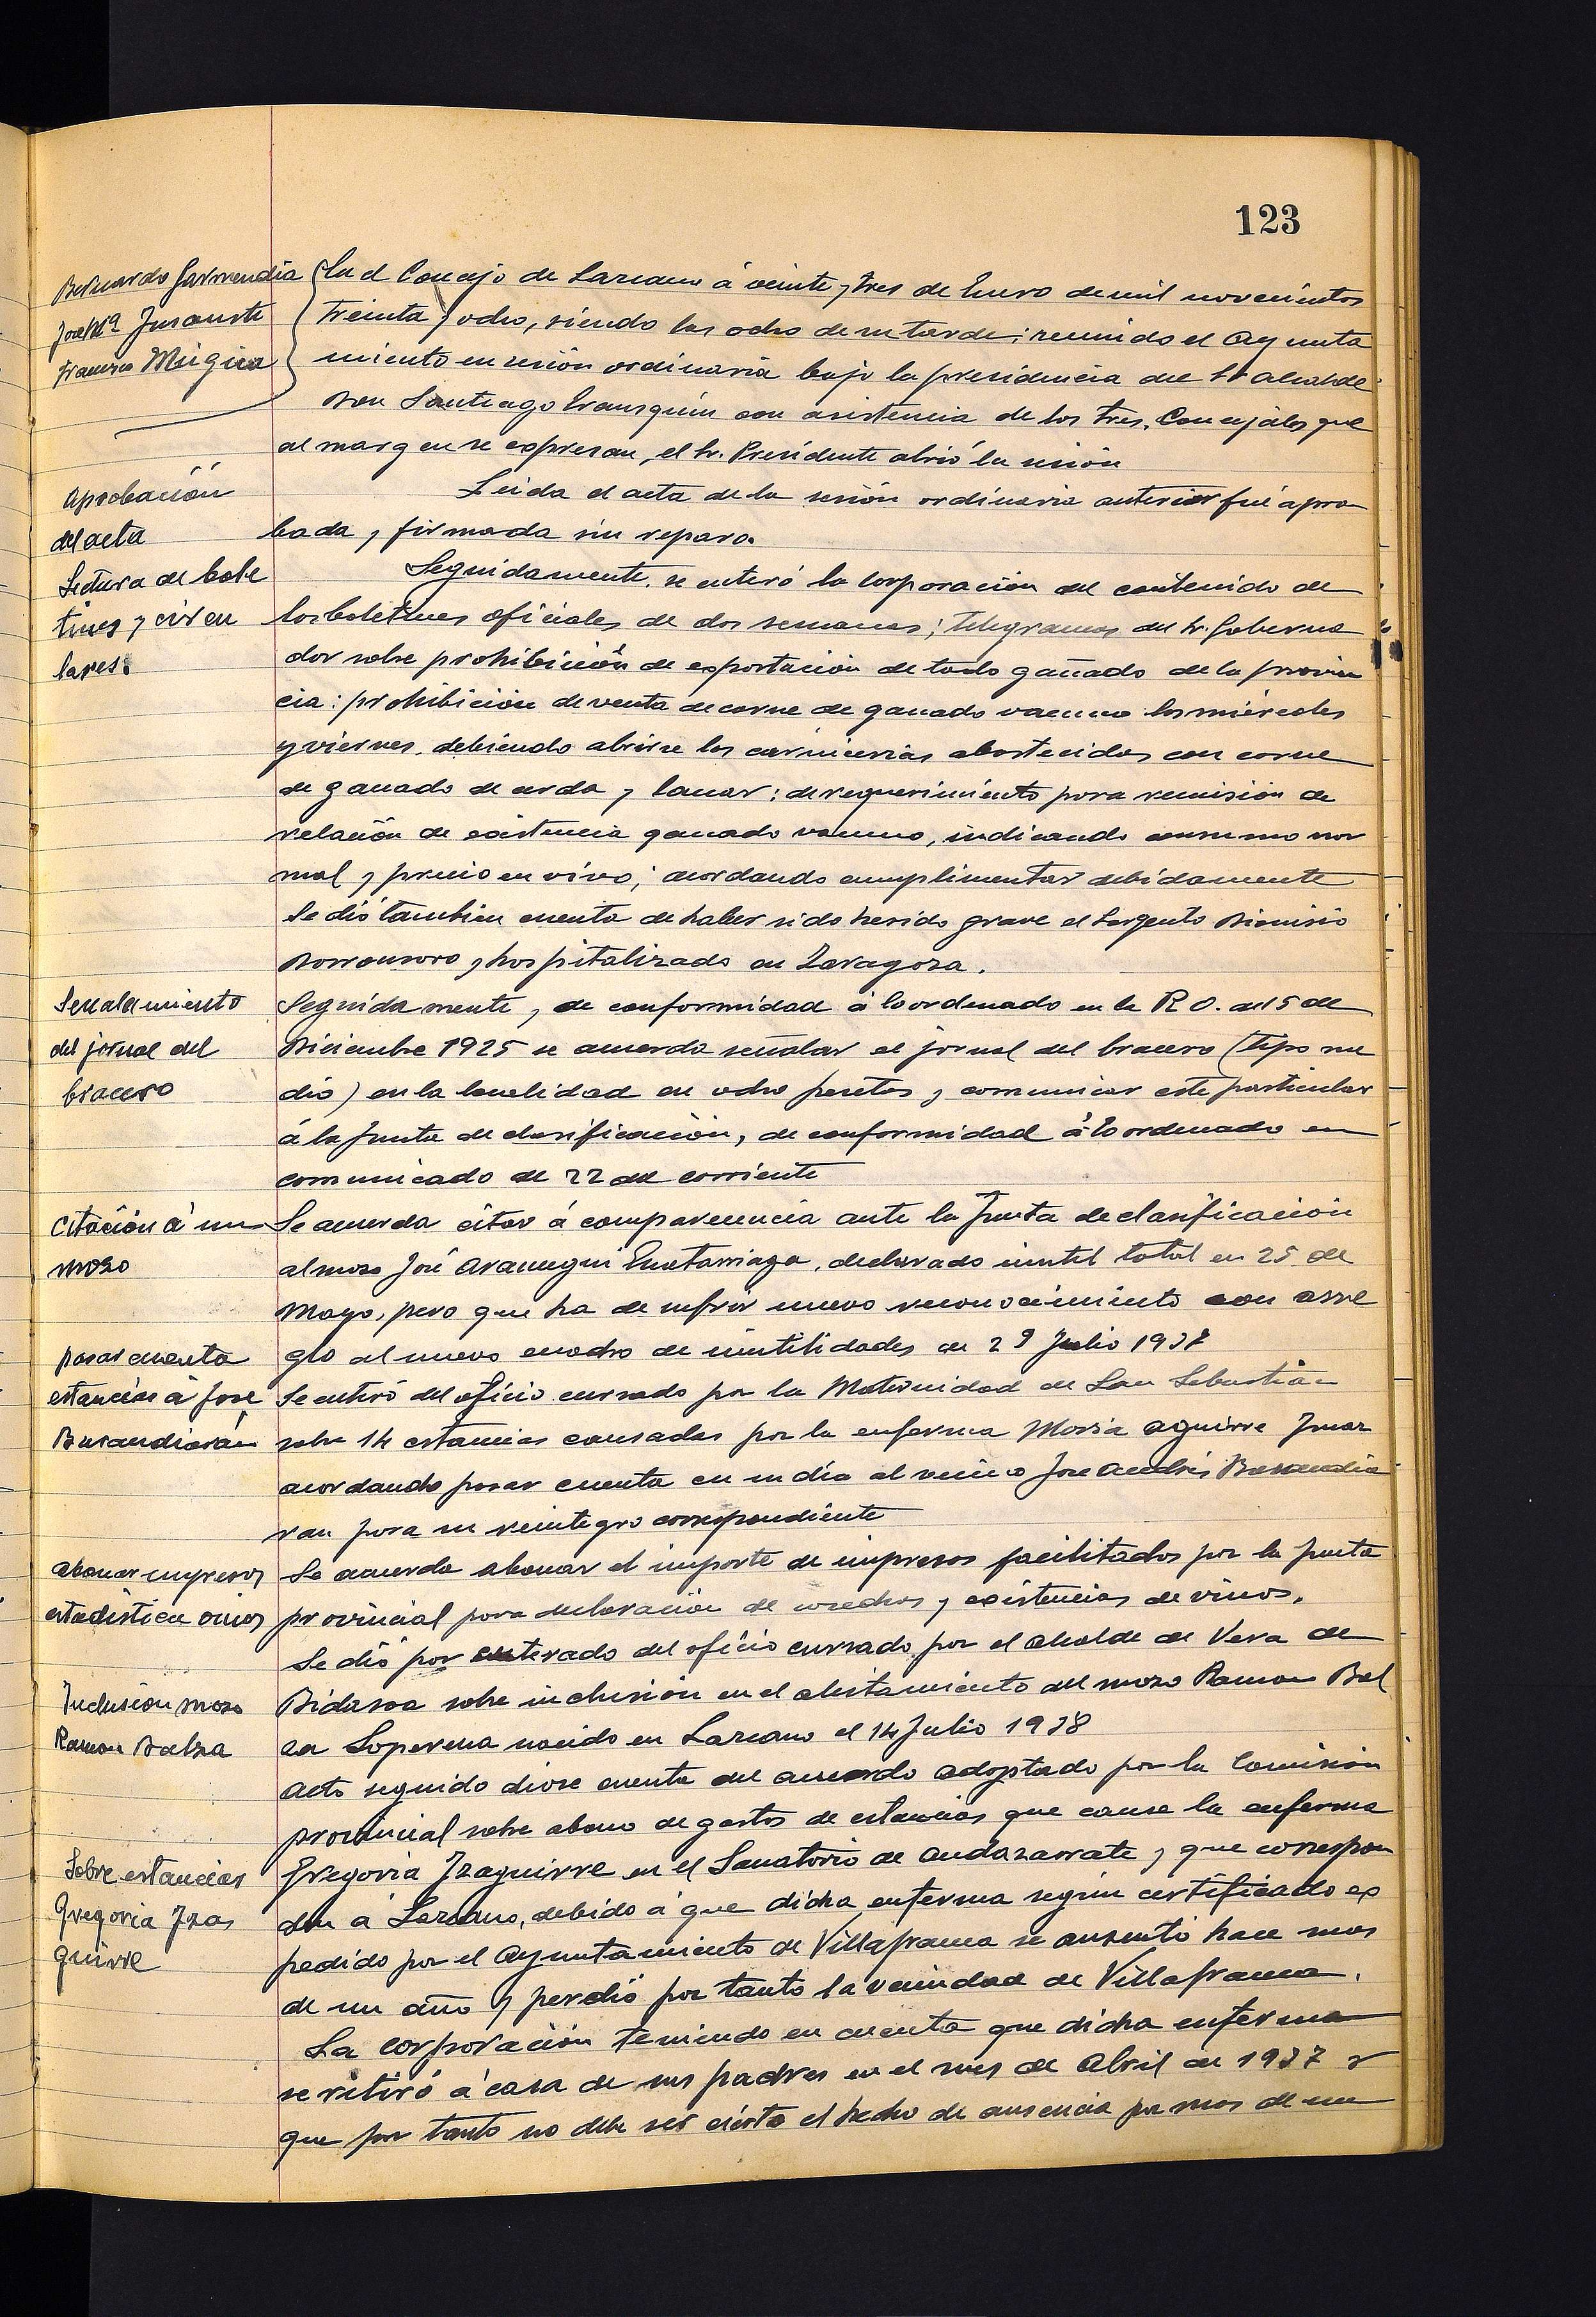 123
Bernardo Garmendia
José Mª Insausti
Francisco Múgica
En el Concejo de Lazcano á veinte y tres de Enero de mil novecientos
treinta y ocho, siendo las ocho de su tarde; reunido el Ayunta
miento en sesión ordinaria bajo la presidencia del Sr Alcalde
Don Santiago Irausquin con asistencia de los tres Concejales que
al margen se expresan, el Sr. Presidente abrió la sesión
Aprobación
del acta
Leida el acta de la sesión ordinaria anterior fué apro
bada y firmada sin reparo.
Lectura de bole
tines y circu
lares.
Seguidamente se enteró la Corporación del contenido de
los boletines oficiales de dos semanas; telegramas del Sr. Goberna
dor sobre prohibición de exportación de todo ganado de la provin
cia: prohibición de venta de carne de ganado vacuno los miércoles
y viernes, debiendo abrirse las carnicerias abastecidas con carne
de ganado de cerda y lanar: de requerimiento para remisión de
relación de existencia ganado vacuno, indicando consumo nor
mal y precio en vivo; acordando cumplimentar debidamente
Se dió tambien cuenta de haber sido herido grave el Sargento Dionisio
Dorronsoro y hospitalizado en Zaragoza.
Senalamiento
del jornal del
bracero
Seguidamente, de conformidad á lo ordenado en la R O. del 5 de
Diciembre 1925 se acuerda señalar el jornal del bracero (tipo me
dio) en la localidad en ocho pesetas y comunicar este particular
á la Junta de clasificación, de conformidad á lo ordenado en
comunicado de 22 del corriente
Citación á un
mozo
Se acuerda citar á comparecencia ante la Junta de clasificación
al mozo José Aramegui, declarado inutil total en 25 de
Mayo, pero que ha de sufrir nuevo reconocimiento con arre
glo al nuevo cuadro de inutilidades de 29 Julio 1937
pasar cuenta
estancias á José
Barandiarán
Se enteró del oficio cursado por la Maternidad de San Sebastián
sobre 14 estancias causadas por la enferma Maria Aguirre
acordando pasar cuenta en su día al vecino José Andrés Barandia
ran para su reintegro correspondiente
abonar impresos
estadistica vinos
Se acuerda abonar el importe de impresos facilitados por la Junta
provincial para declaración de cosechas y existencias de vinos.
Se dió por enterado del oficio cursado por el Alcalde de Vera de
Inclusión mozo
Ramon Balza
Bidasoa sobre inclusión en el alistamiento del mozo Ramon Bal
za Loperena nacido en Lazcano el 14 Julio 1938
Acto seguido diose cuenta del acuerdo adoptado por la Comisión
provincial sobre abono de gastos de estancias que cause la enferma
Sobre estancias
Gregoria Iza
guirre
Gregoria Izaguirre en el Sanatorio de Andazarrate y que correspon
den á Lazcano, debido á que dicha enferma según certificado ex
pedido por el Ayuntamiento de Villafranca se ausentó hace mas
de un año y perdió por tanto la vecindad de Villafranca.
La corporación teniendo en cuenta que dicha enferma
se retiró á casa de sus padres en el mes de Abril de 1937 y
que por tanto no debe ser cierto el hecho de ausencia por mas de un